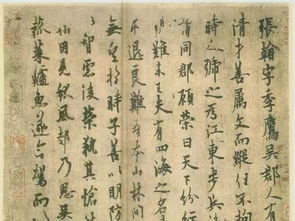 張翰字季鷹吳郡人有
清才善屬文而縱任不拘
時人號之為江東步兵
謂同郡顧榮曰天下紛
難未已夫有四海之名
求退良難吾本山林間
無望於時子善以明防
以智慮後榮執其愴
翰因見秋風起乃思吳
菰菜鱸魚遂命駕而